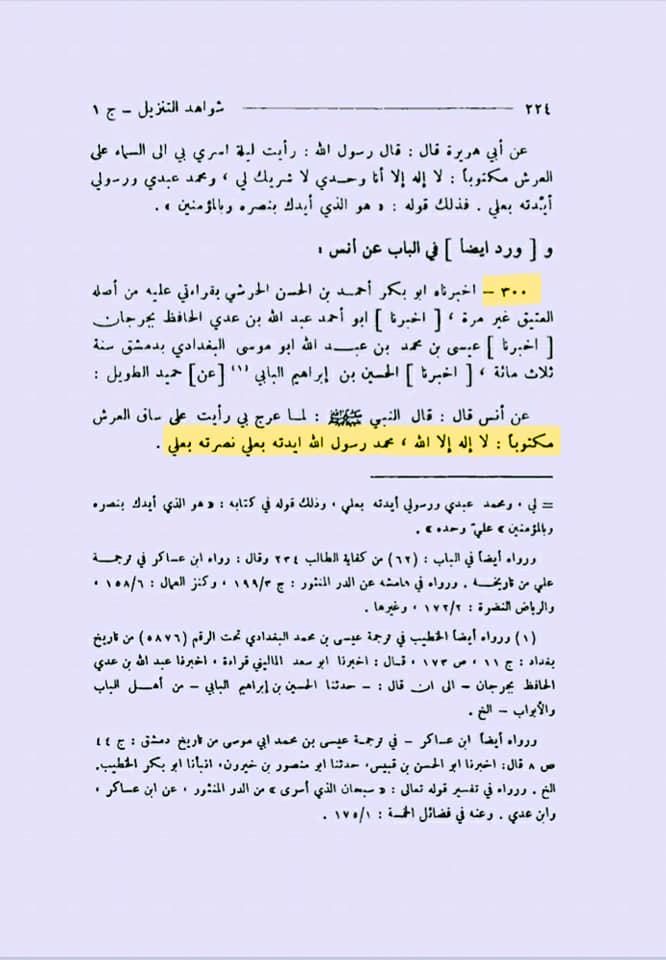 ٢٢٤ شواهد التنزيل – ج ١
عن أبي هريرة قال : قال رسول الله : رأيت ليلة اسري بي الى السماء على
العرش مكتوباً : لا إله إلا أنا وحدي لا شريك لي ، ومحمد عبدي ورسولي
أيّدته بعلي . فذلك قوله : « هو الذي أيدك بنصره وبالمؤمنين » .
و [ ورد ايضاً ] في الباب عن أنس :
٣٠٠ – اخبرناه ابو بكر أحمد بن الحسن الحرشي بقراءتي عليه من أصله
العتيق غير مرة ، [ اخبرنا ] ابو أحمد عبد الله بن عدي الحافظ بجرجان
[ اخبرنا ] عيسى بن محمد بن عبد الله ابو موسى البغدادي بدمشق سنة
ثلاث مائة ، [ اخبرنا ] الحسين بن إبراهيم البابي (١) [عن] حميد الطويل :
عن أنس قال : قال النبي ﷺ : لما عرج بي رأيت على ساق العرش
مكتوباً : لا إله إلا الله ، محمد رسول الله ايدته بعلي نصرته بعلي .
= لي ، ومحمد عبدي ورسولي أيدته بعلي ، وذلك قوله في كتابه : « هو الذي أيدك بنصره
وبالمؤمنين » عليّ وحده » .
ورواه أيضاً في الباب : (٦٢) من كفاية الطالب ٢٣٤ وقال : رواه ابن عساكر في ترجمة
علي من تاريخه . ورواه في هامشه عن الدر المنثور : ج ١٩٩/٣ ، وكنز العمال : ١٥٨/٦ ،
والرياض النضرة : ١٧٢/٢ ، وغيرها .
(١) ورواه أيضاً الخطيب في ترجمة عيسى بن محمد البغدادي تحت الرقم (٥٨٧٦) من تاريخ
بغداد : ج ١١ ، ص ١٧٣ ، قال : اخبرنا ابو سعد الماليني قراءة ، اخبرنا عبد الله بن عدي
الحافظ بجرجان – الى ان قال : – حدثنا الحسين بن إبراهيم البابي – من أهل الباب
والأبواب – الخ .
ورواه أيضاً ابن عساكر – في ترجمة عيسى بن محمد ابي موسى من تاريخ دمشق : ج ٤٤
ص ٨ قال: اخبرنا ابو الحسن بن قبيس، حدثنا ابو منصور بن خيرون، انبأنا ابو بكر الخطيب.
الخ . ورواه في تفسير قوله تعالى : « سبحان الذي أسرى » من الدر المنثور ، عن ابن عساكر ،
وابن عدي . وعنه في فضائل الخمسة : ١٧٥/١ .